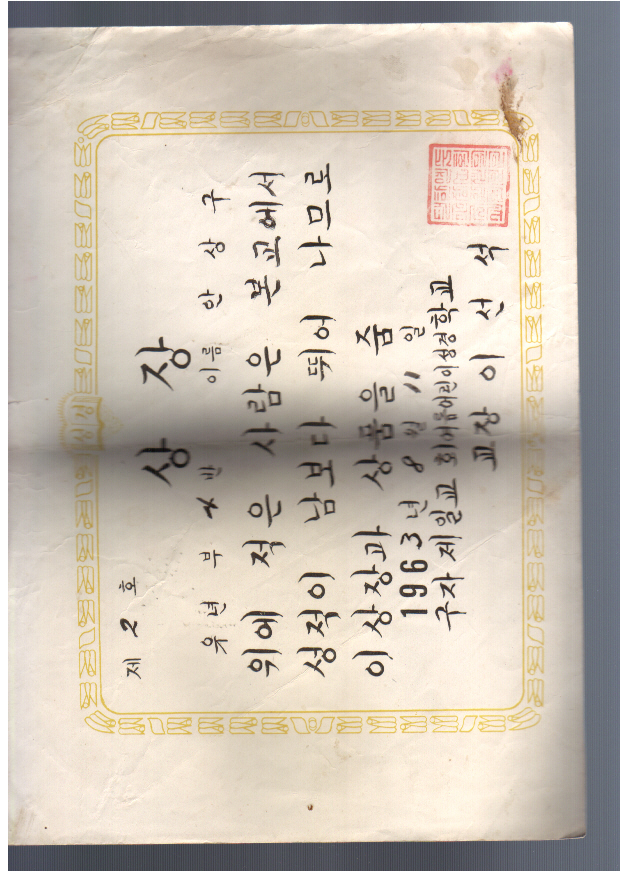 성경
제 2 호
상 장
유년부 4반 이름 안상구
위에 적은 사람은 본교에서
성적이 남보다 뛰어 나므로
이 상장과 상품을 줌
1963년 8월 11일
구자 제일교회여름어린이성경학교
교장 이선석